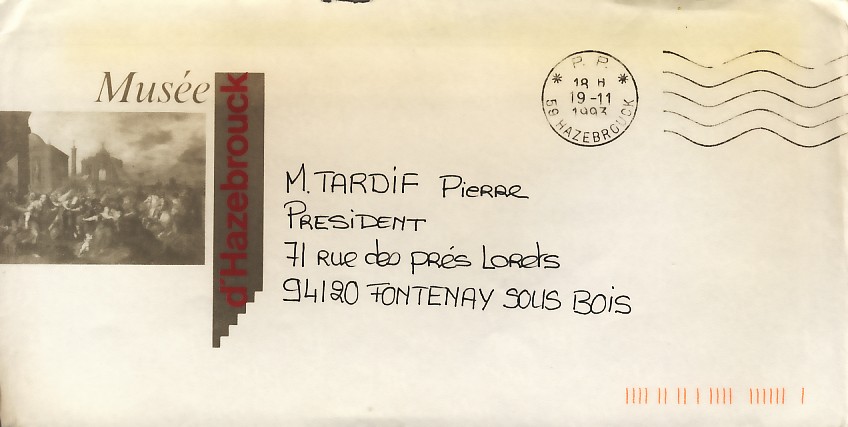 Musée
d'Hazebrouck
P. P.
18 H
19-11
1993
59 HAZEBROUCK
M. TARDIF Pierre
PRESIDENT
71 rue des prés Lorets
94120 FONTENAY SOUS BOIS